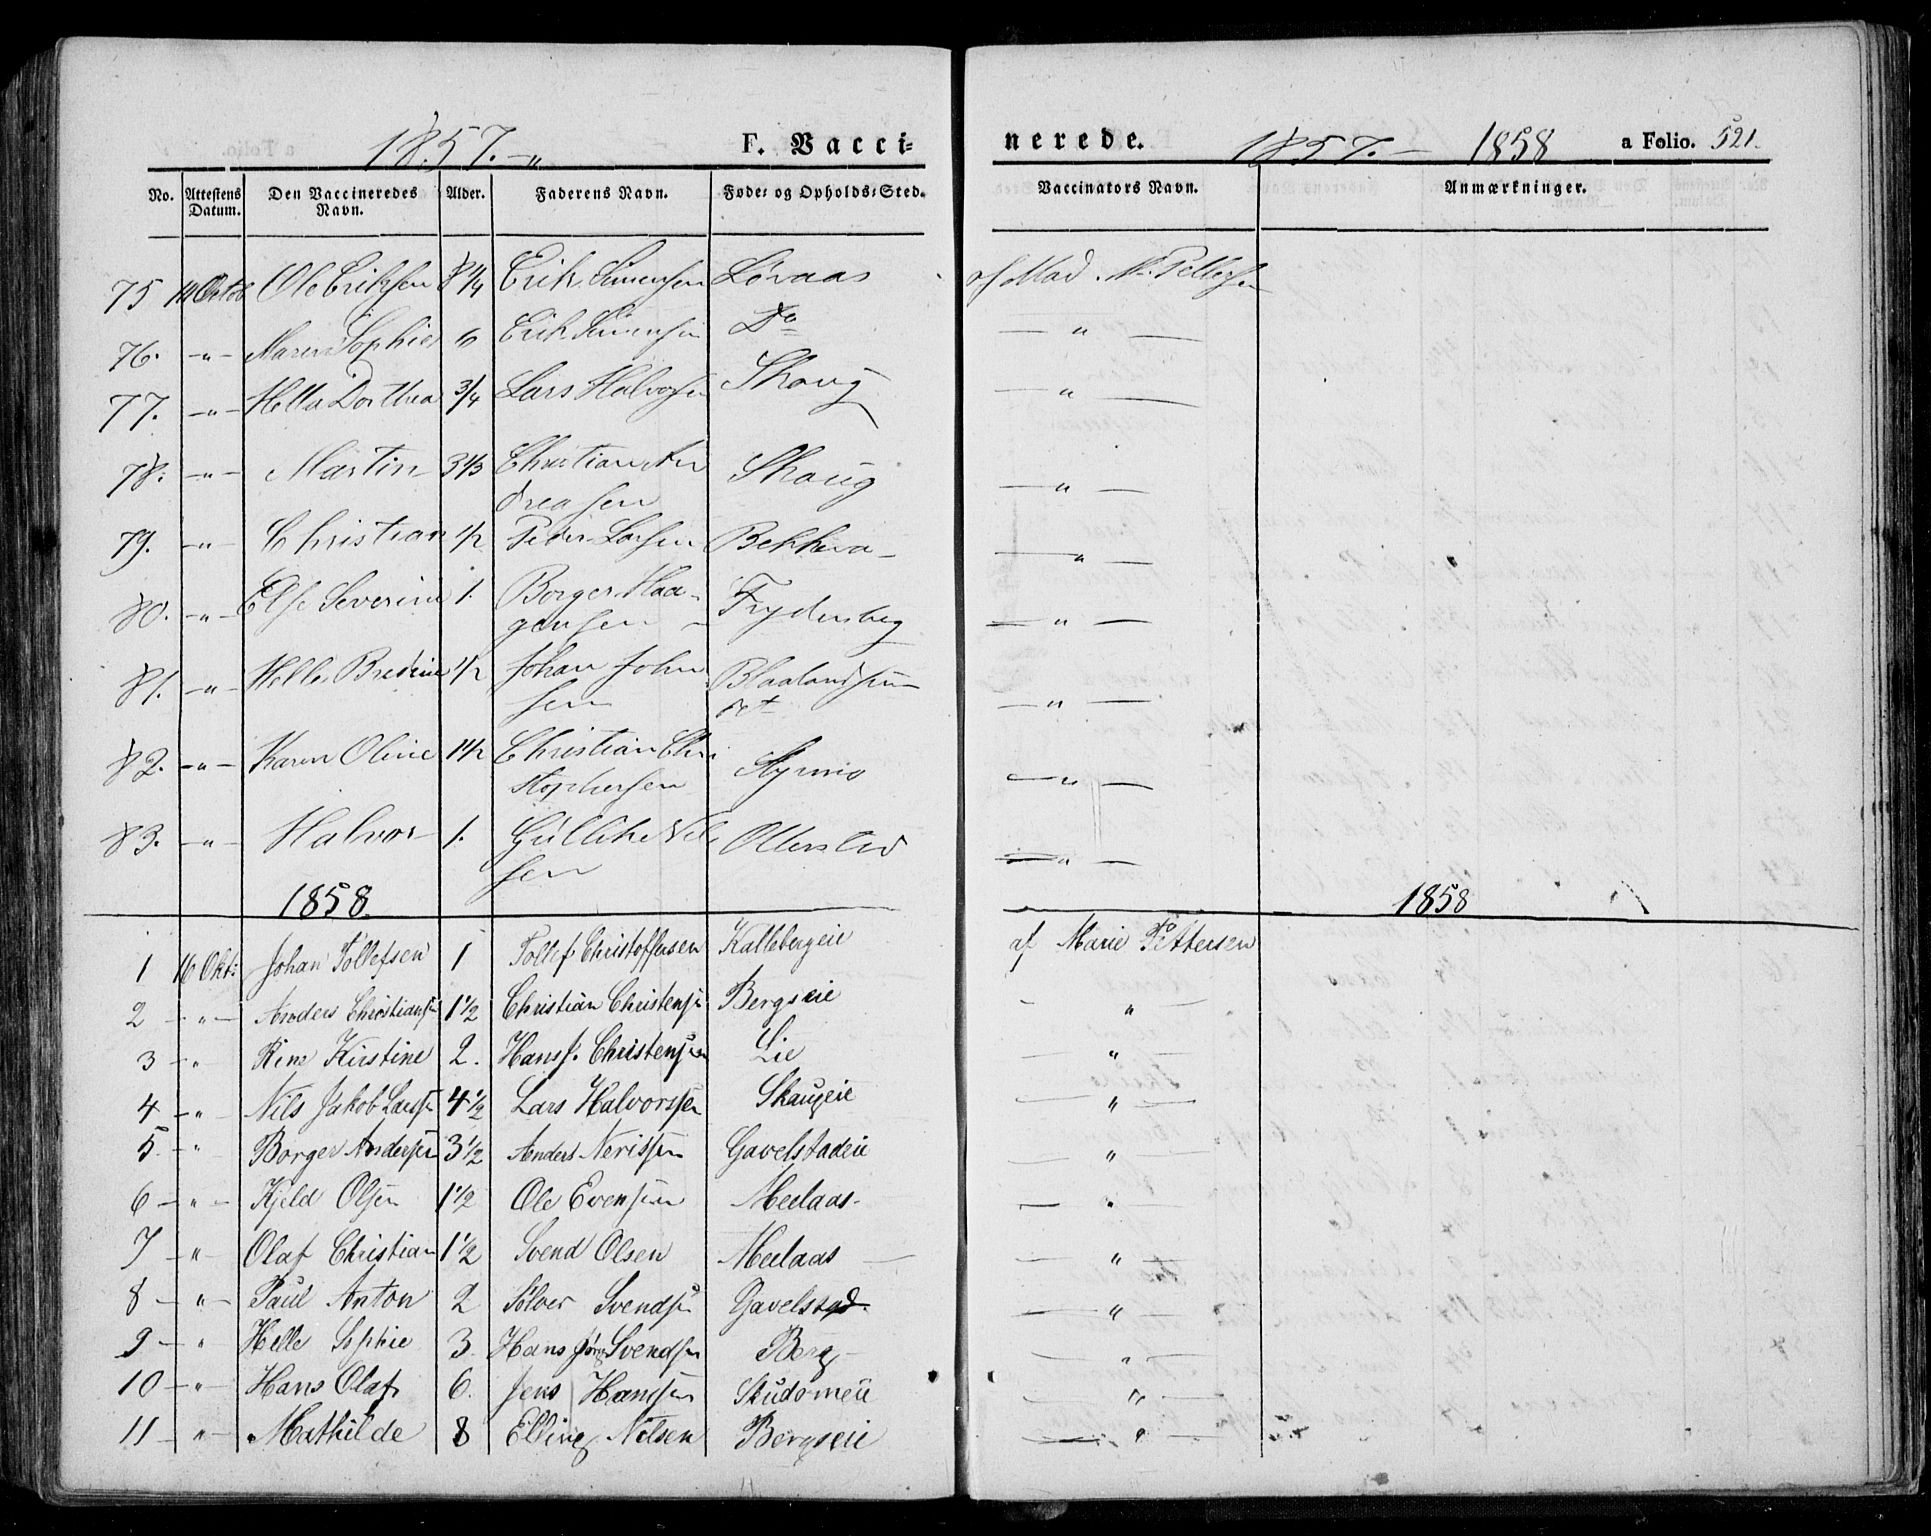 1857. F. Vacci-
nerede. 1857. - 1858 a Folio. 521.
No. Attestens Datum. Den Vaccineredes Navn. Alder. Faderens Navn. Føde- og Opholds-Sted. Vaccinators Navn. Anmærkninger.
75 14 Octob Ole Eriksen 8 1/4 Erik Simensen Løvaas af Mad. M. Pettersen
76. -"- Maren Sophie 6 Erik Simensen Do - " -
77. -"- Helle Dorthea 3/4 Lars Halvorsen Skoug - " -
78. -"- Martin 3 1/3 Christian An Skoug - " -
dreasen
79. -"- Christian 1/2 Peder Larsen Bekkeva - " -
80. -"- Else Severine 1. Borger Haa- Frydenberg - " -
gensen -
81. -"- Helle Bredine 1/2 Johan John Blaalandsun - " -
sen det
82. -"- Karen Oline 1 1/2 Christian Chri - " -
stophersen
83. -"- Halvor 1. Gullik Nil Ollerstad - " -
sen
1858. 1858
1 16 Okt: Johan Tollefsen 1 Tollef Christoffersen Kallebergeie af Marie Pettersen
2 -"- Anders Christiansen 1 1/2 Christian Christensen Bergseie - " -
3 -" Rine Kirstine 2. Hans J. Christensen Lie - " -
4 -"- Nils Jakob Larssen 4 1/2 Lars Halvorssen Skaugeie - " -
5. -" Borger Anderssen 3 1/2 Anders Nerissen Gavelstadeie - " -
6 -"- Kjeld Olsen 1 1/2 Ole Evensen Meelaas - " -
7 -"- Olaf Christian 1 1/2 Svend Olsen Meelaas - " -
8 -"- Paul Anton 2 Sølver Svendsen Gavelstad. - " -
9 -" Helle Sophie 3. Hans Jørg Svendsen Berg - " -
10 -"- Hans Olaf 6. Jens Hansen - " -
11 -"- Mathilde 8 Elling Nilsen Bergseie - " -